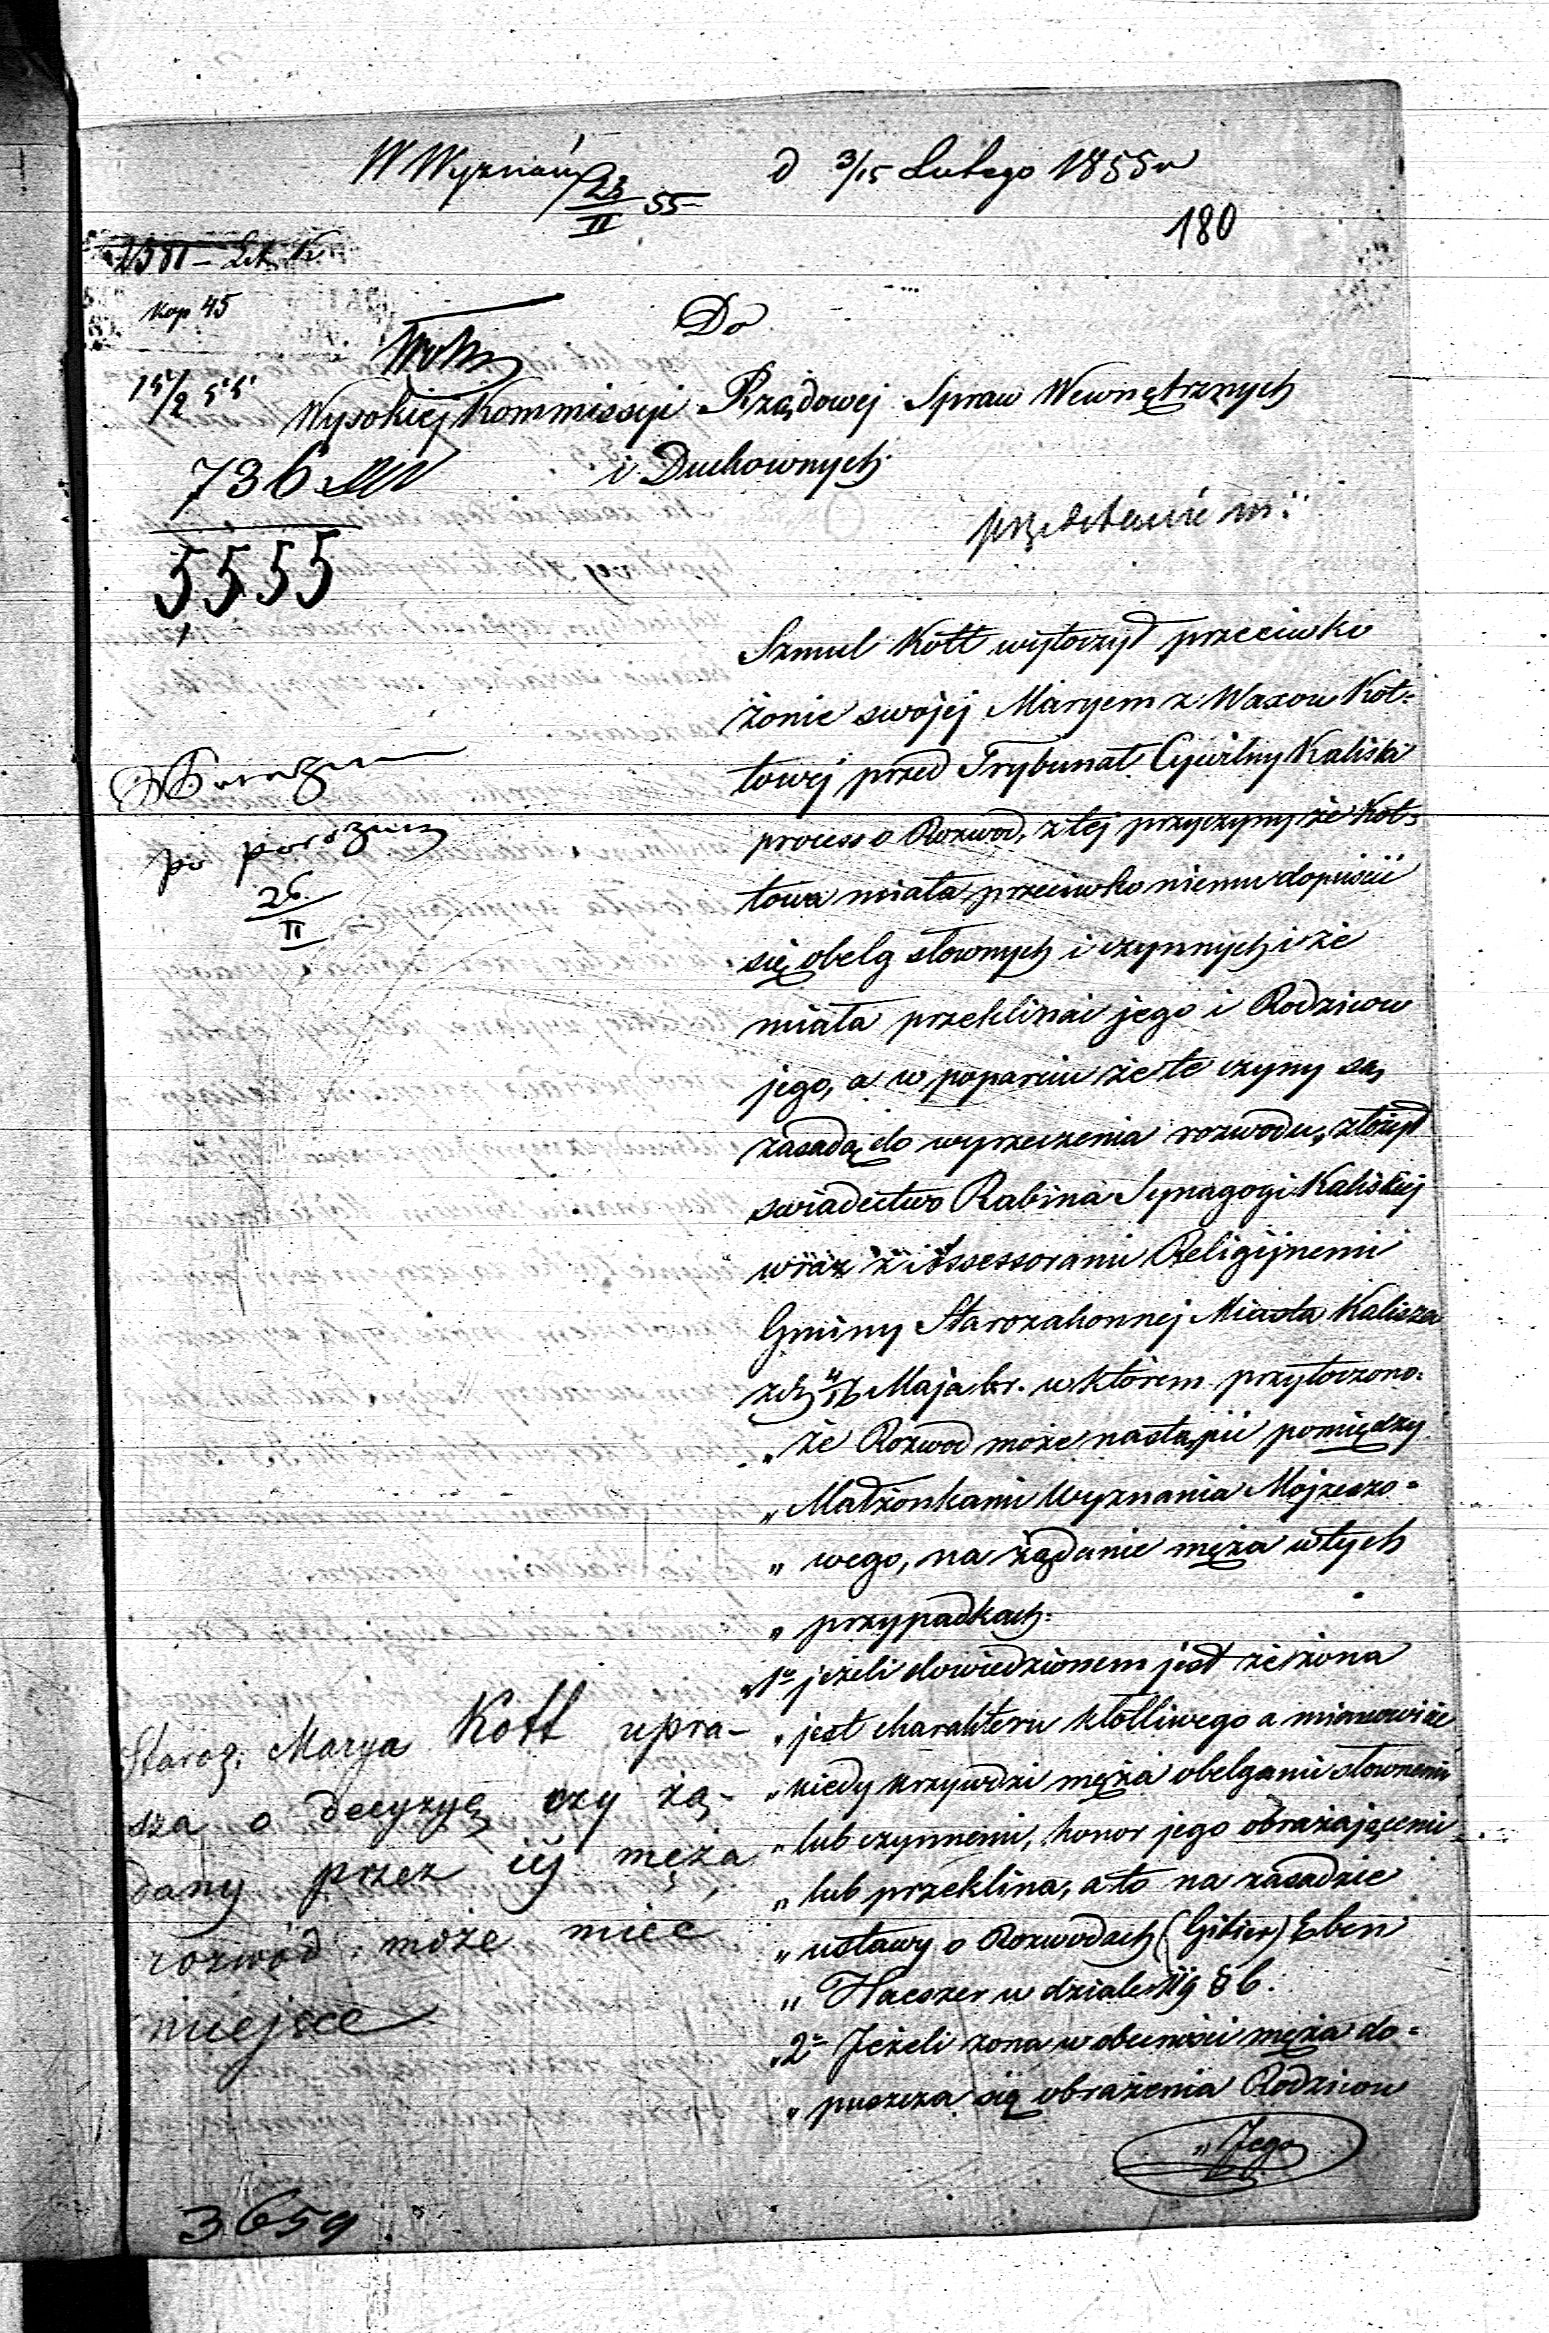 W Wyznań 23/II 55
d 3/15 Lutego 1855 r
180
2581 - Lit. K
kop 45
15/2 55
736
5555
Do
Wysokiej Kommissyi Rządowej Spraw Wewnętrznych
i Duchownych
po
26/II
Szmul Kott wytoczył przeciwko
żonie swojej Maryem z Waxow Kot=
towej przed Trybunał Cywilny Kaliski
process o Rozwod, z tej przyczyny że Kot=
towa miała przeciwko niemu dopuścić
się obelg słownych i czynnych i że
miała przeklinać jego i Rodzicow
jego, a w poparciu że te czyny są
zasadą do wyrzeczenia rozwodu, złożył
swiadectwo Rabina Synagogi Kaliskiej
wraz z Assessorami Religijnemi
Gminy Starozakonnej Miasta Kalisza
z d. 4/16 Maja br. w którem przytoczono.
„ że Rozwod może nastąpić pomiędzy
„ Małżonkami Wyznania Mojżeszo=
„ wego, na żądanie męża w tych
„ przypadkach:
„ 1o jeżeli dowiedzionem jest że żona
„ jest charakteru kłotliwego a mianowicie
„ kiedy krzywdzi męża obelgami słownemi
„ lub czynnemi, honor jego obrażającemi
„ lub przeklina, a to na zasadzie
„ ustawy o Rozwodach (Gitien) Eben
„ Haeszer w dziale 119 § 6.
„ 2o Jeżeli żona w obecności męża do=
„ puszcza się obrażenia Rodzicow
„ Jego
Staroz. Marya Kott upra-
sza o decyzyę czy żą-
dany przez iéj męża,
rozwód, może mieć
miejsce
3659